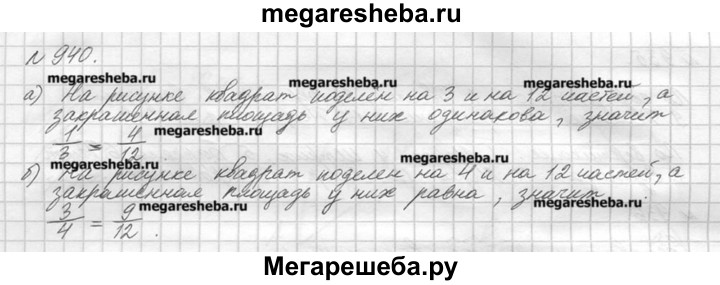 megaresheba.ru
№ 940.
megaresheba.ru megaresheba.ru megaresheba.ru
а) На рисунке квадрат поделен на 3 и на 12 частей, а
закрашенная площадь у них одинакова, значит
1/3 = 4/12 megaresheba.ru
megaresheba.ru
б) На рисунке квадрат поделен на 4 и на 12 частей, а
закрашенная площадь у них равна, значит
megaresheba.ru megaresheba.ru
3/4 = 9/12.
Мегарешеба.ру